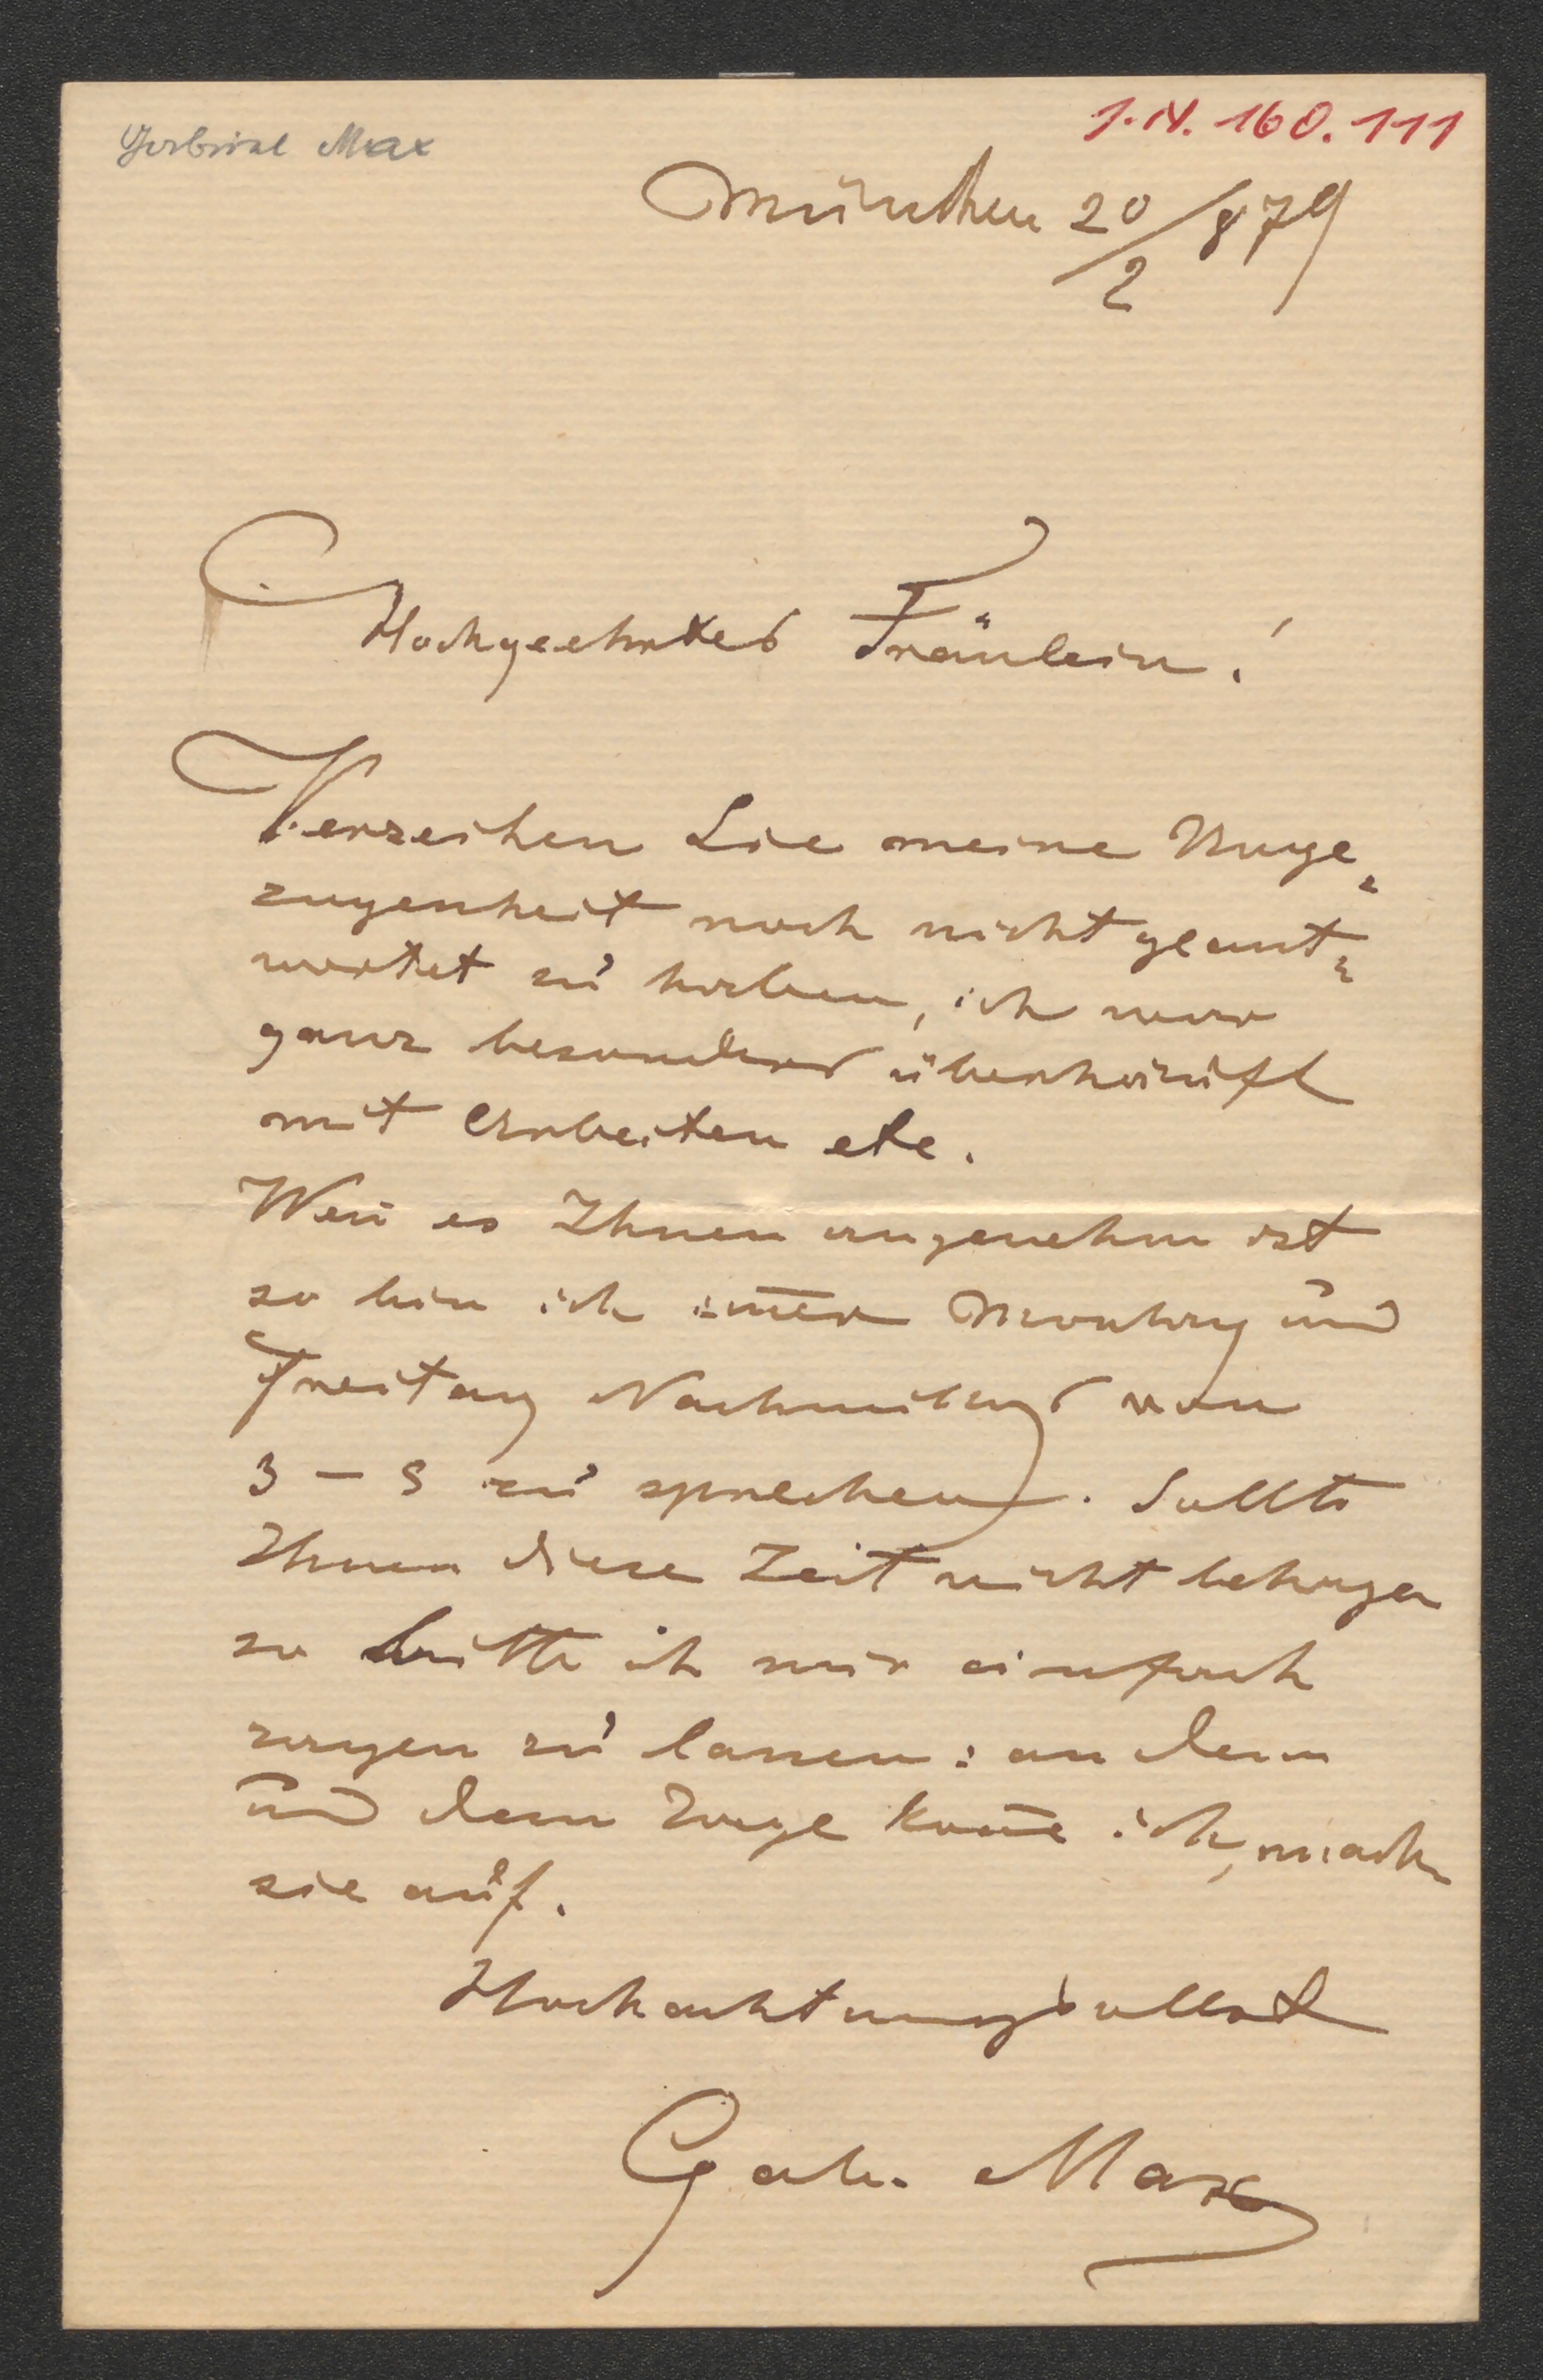 Gabriel Max
I.N. 160.111
München 20/2 879
Hochgeehrtes Fräulein!
Verzeihen Sie meine Unge=
zogenheit noch nicht geant=
wortet zu haben, ich war
ganz besonders überhäuft
mit Arbeiten etc.
Wen̄ es Ihnen angenehm ist
so bin ich im̄er Montag und
Freitag Nachmittags von
3 – 5 zu sprechen. Sollte
Ihnen diese Zeit nicht behagen
so bitte ich mir einfach
sagen zu lassen: an dem
und dem Tage kom̄e ich, mach
sie auf.
Hochachtungsvollst
Gab. Max